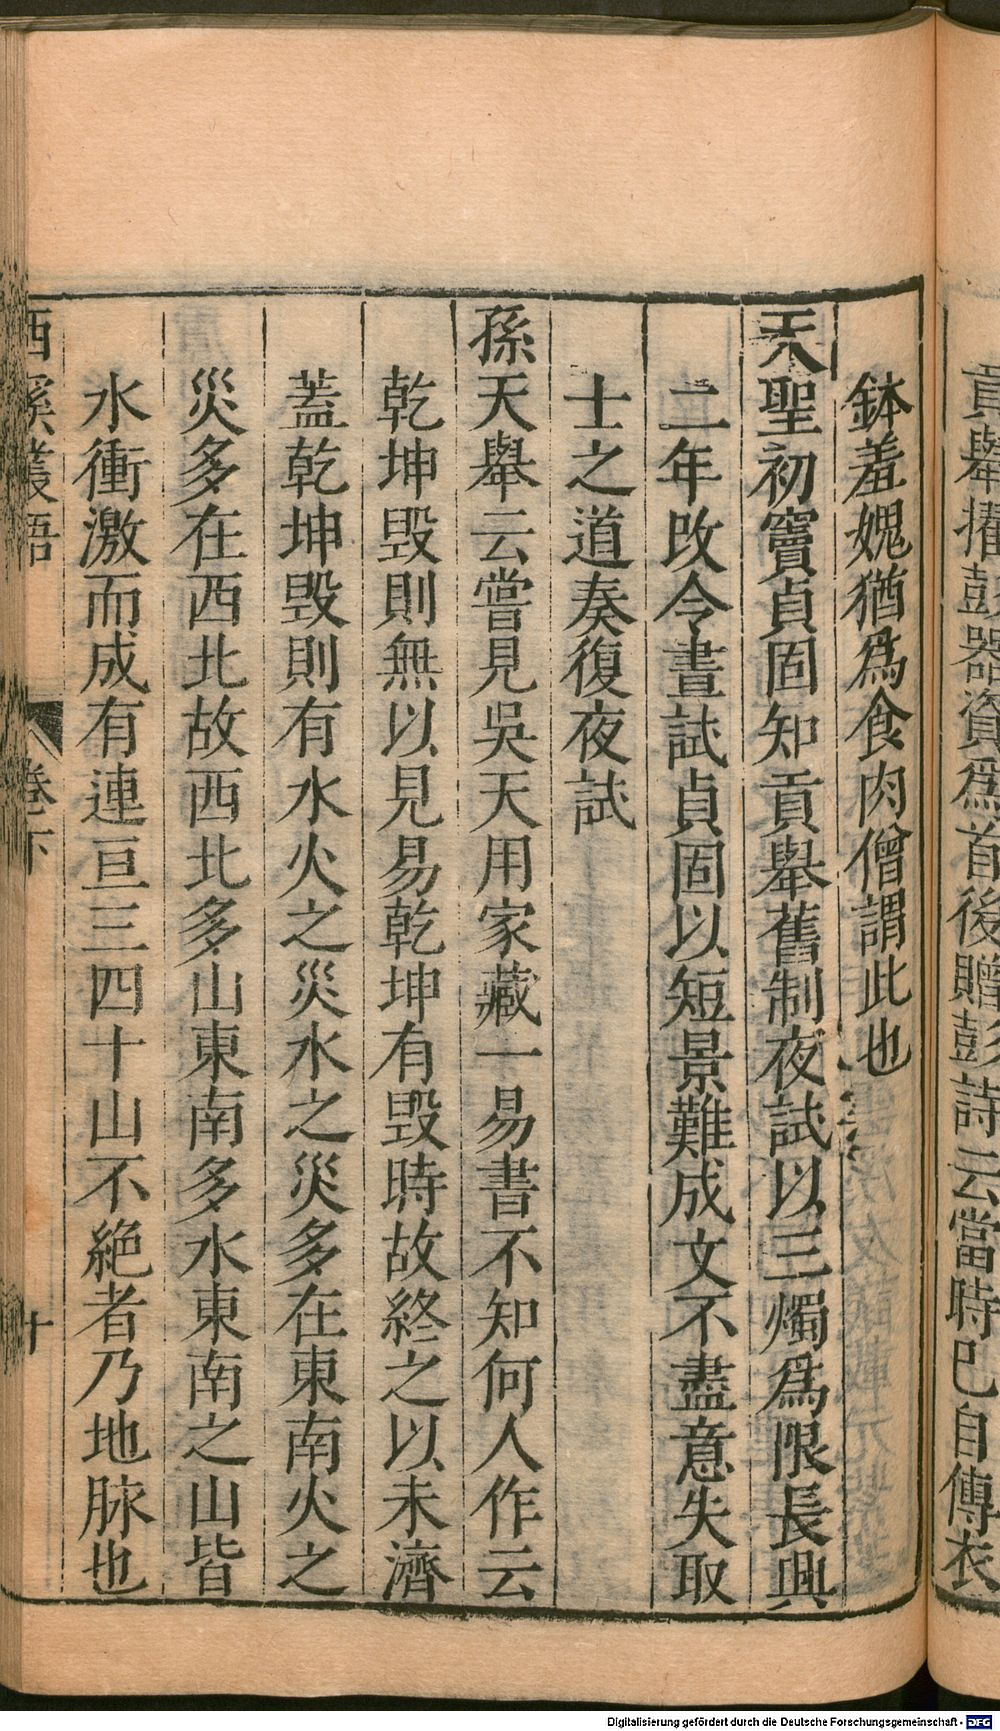 貢舉擢彭器資爲首後贈彭詩云當時已自傳衣
鉢羞媿猶爲食肉僧謂此也
天聖初竇貞固知貢舉舊制夜試以三燭爲限長興
二年改令晝試貞固以短景難成文不盡意失取
士之道奏復夜試
孫天舉云嘗見吳天用家藏一易書不知何人作云
乾坤毁則無以見易乾坤有毁時故終之以未濟
蓋乾坤毁則有水火之災水之災多在東南火之
災多在西北故西北多山東南多水東南之山皆
水衝激而成有連亘三四十山不絶者乃地脉也
西溪叢語 卷下 十
Digitalisierung gefördert durch die Deutsche Forschungsgemeinschaft - DFG